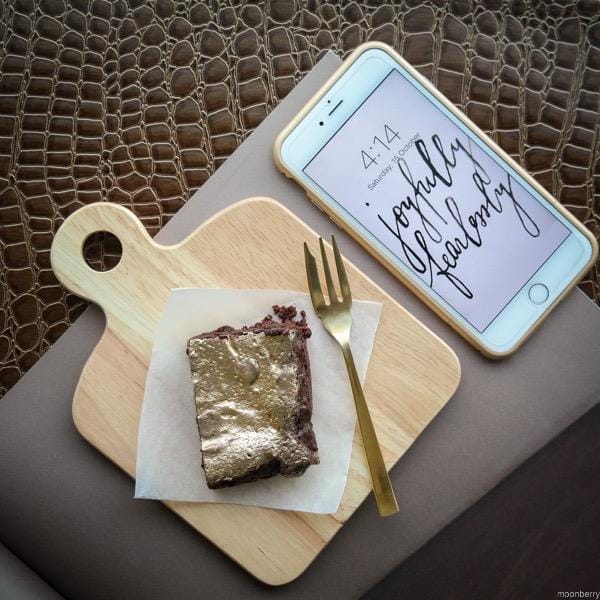 4:14
Saturday, 15 October
joyfully
fearlessly
moonberry